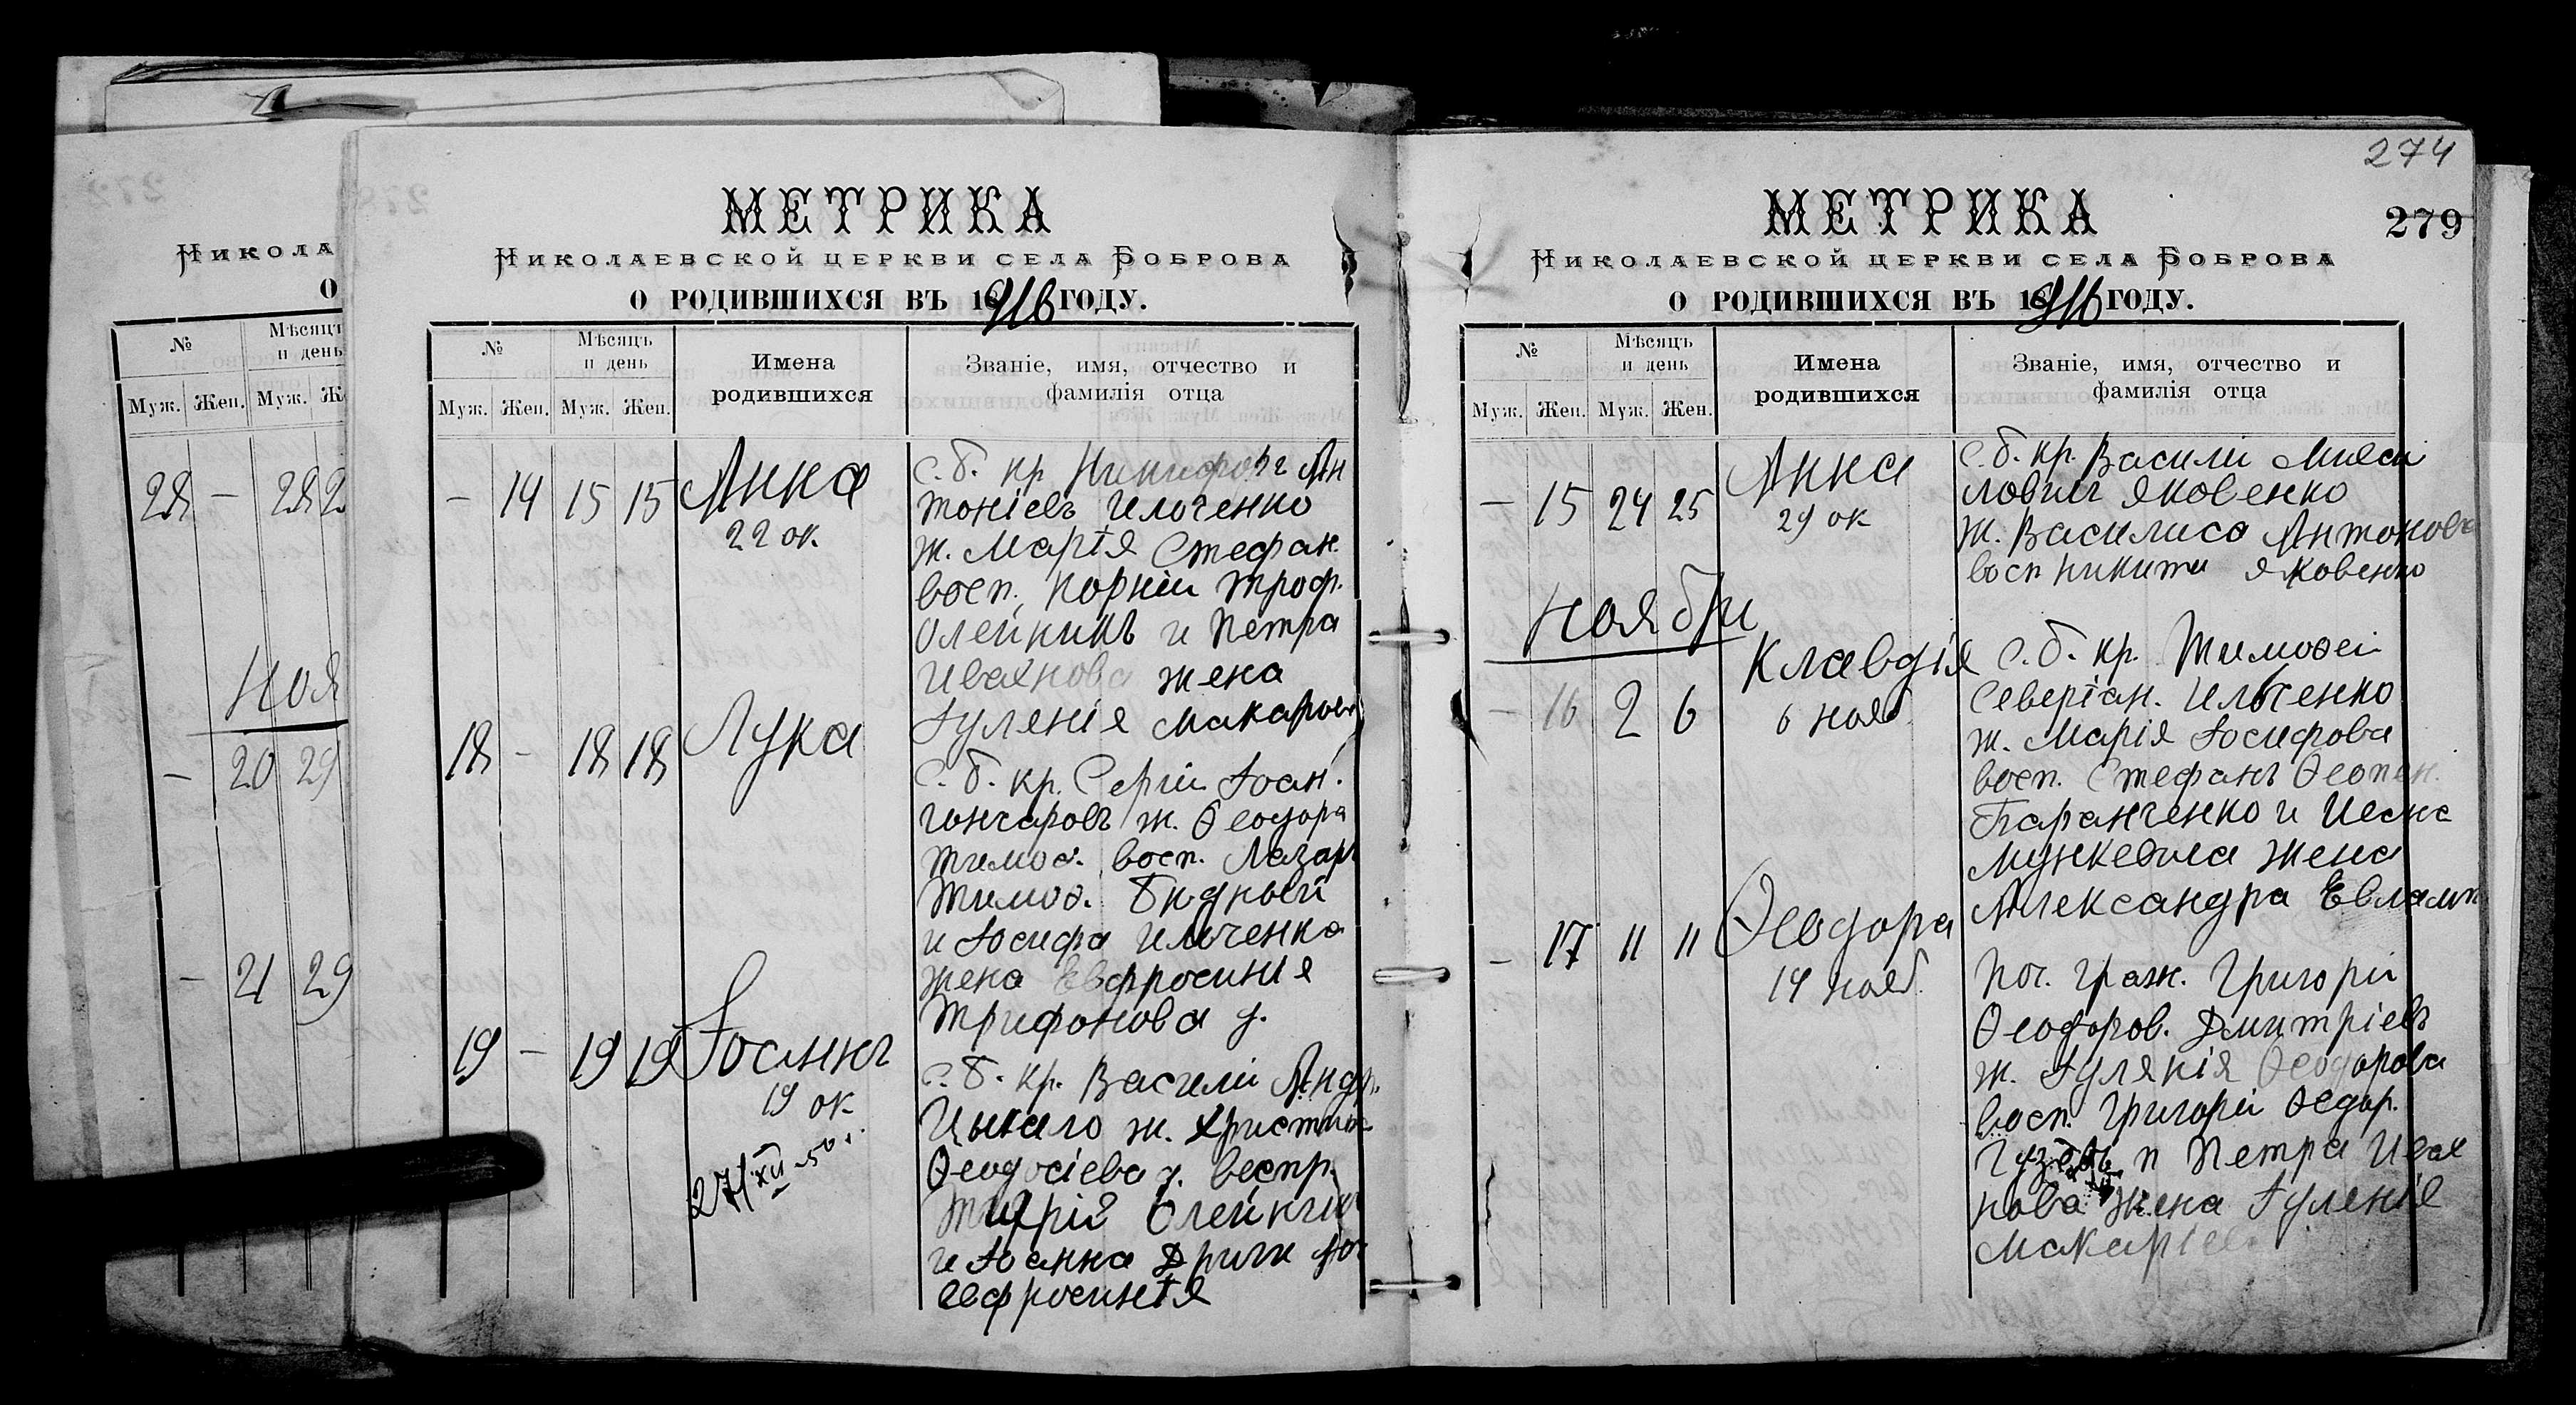 НИКОЛА
О
№
Мѣсяцъ
и день
Муж. Жен. Муж. Ж
28 - 28 2
Ноя
- 20 29
- 21 29
МЕТРИКА
НИКОЛАЕВСКОЙ ЦЕРКВИ СЕЛА БОБРОВА
О РОДИВШИХСЯ ВЪ 1916 ГОДУ.
№
Мѣсяцъ
и день
Имена
родившихся
Званіе, имя, отчество и
фамилія отца
Муж. Жен. Муж. Жен.
- 14 15 15 Анна
22 ок.
с. б. кр Никифоръ Ан
тоніевъ Ильченко
ж. Марія Стефан.
восп. Корній Троф.
Олейникъ и Петра
Ивахнова жена
Іуленія Макарова
18 - 18 18 Лука
с. б. кр. Сергій Іоан.
Гончаровъ ж. Ѳеодора
Тимоѳ. восп. Лазарь
Тимоѳ. Бидный
и Іосифа Ильченка
жена Евфросинія
Трифонова д.
19 - 19 19 Іоаннъ
19 ок
27/XII-50 г.
с. б. кр. Василій Андр.
Цыкало ж. Христина
Ѳеодосіева д. воспр.
Олейник
и Іоанна
Евфросинія
274
279
МЕТРИКА
НИКОЛАЕВСКОЙ ЦЕРКВИ СЕЛА БОБРОВА
О РОДИВШИХСЯ ВЪ 1916 ГОДУ.
№
Мѣсяцъ
и день
Имена
родившихся
Званіе, имя, отчество и
фамилія отца
Муж. Жен. Муж. Жен.
- 15 24 25 Анна
29 ок
с. б. кр. Василій
Яковенко
ж. Василиса Антонова
восп Никити Яковенко
Ноября
- 16 2 6 Клавдія
6 нояб
с. б. кр. Тимоѳей
Северіан. Ильченко
ж. Марія Іосифова
восп. Стефанъ
Баранченко и
жена
Александра Евламп
- 17 11 11 Ѳеодора
14 нояб.
Поч. граж. Григорій
Ѳеодоров. Дмитріевъ
ж. Іулянія Ѳеодорова
восп. Григорій Ѳедор.
и Петра Ивах
нова жена Іуленія
Макаріева